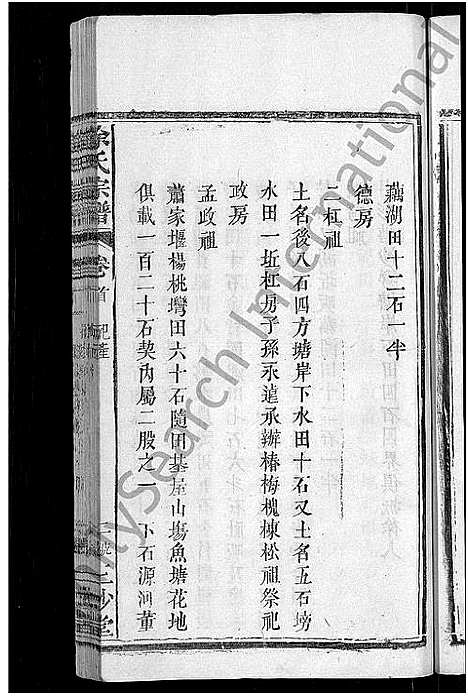 藕湖田十二石一半
德房
二杠祖
土名後八石四方塘岸下水田十石又土名五石塝
水田一坵杠房子孫永遠承辦椿梅槐棟松祖祭祀
政房
孟政祖
蕭家堰楊桃灣田六十石隨田基屋山塲魚塘花地
俱載一百二十石契內屬二股之一 下石源洞董
余氏宗譜
卷首
祀產
三妙堂
MySearch International